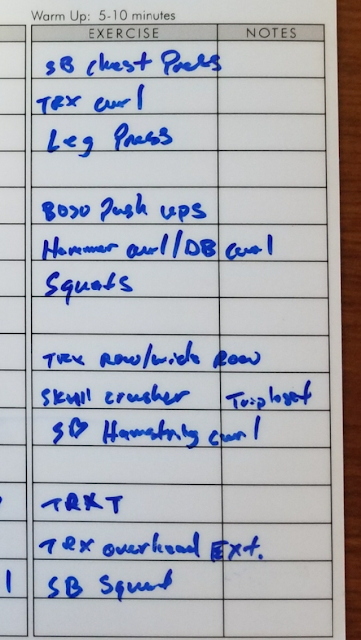 Warm Up: 5-10 minutes
EXERCISE NOTES
SB chest Press
TRX curl
Leg Press
BOSO Push ups
Hammer curl/DB curl
Squats
TRX Row/wide Row
Skull crusher Tripleset
SB Hamstring curl
TRX T
TRX overhead Ext.
SB Squat